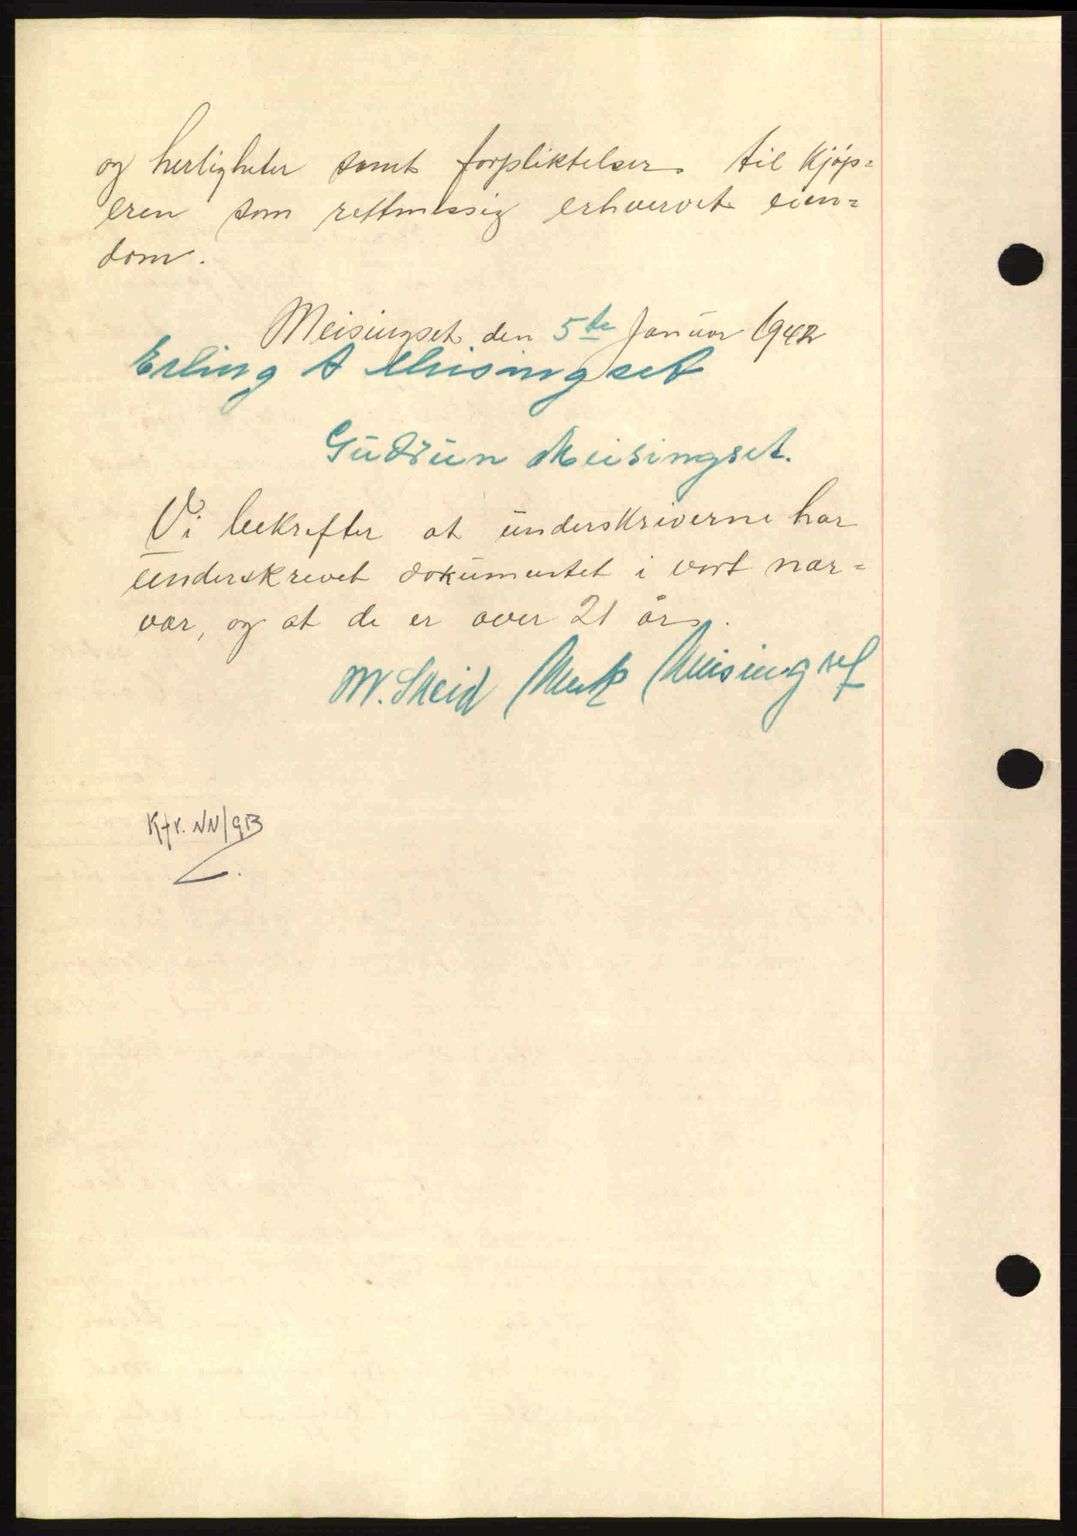 og herligheter samt forpliktelser til kjøp=
eren som rettmessig erhvervet eien=
dom.
Meisingset den 5te Januar 1942
Erling A Meisingset
Gudrun Meisingset.
Vi bekrefter at underskriverne har
underskrevet dokumentet i vort nær=
vær, og at de er over 21 år.
M. Skeid Meisingset
Kfr. NN/GB